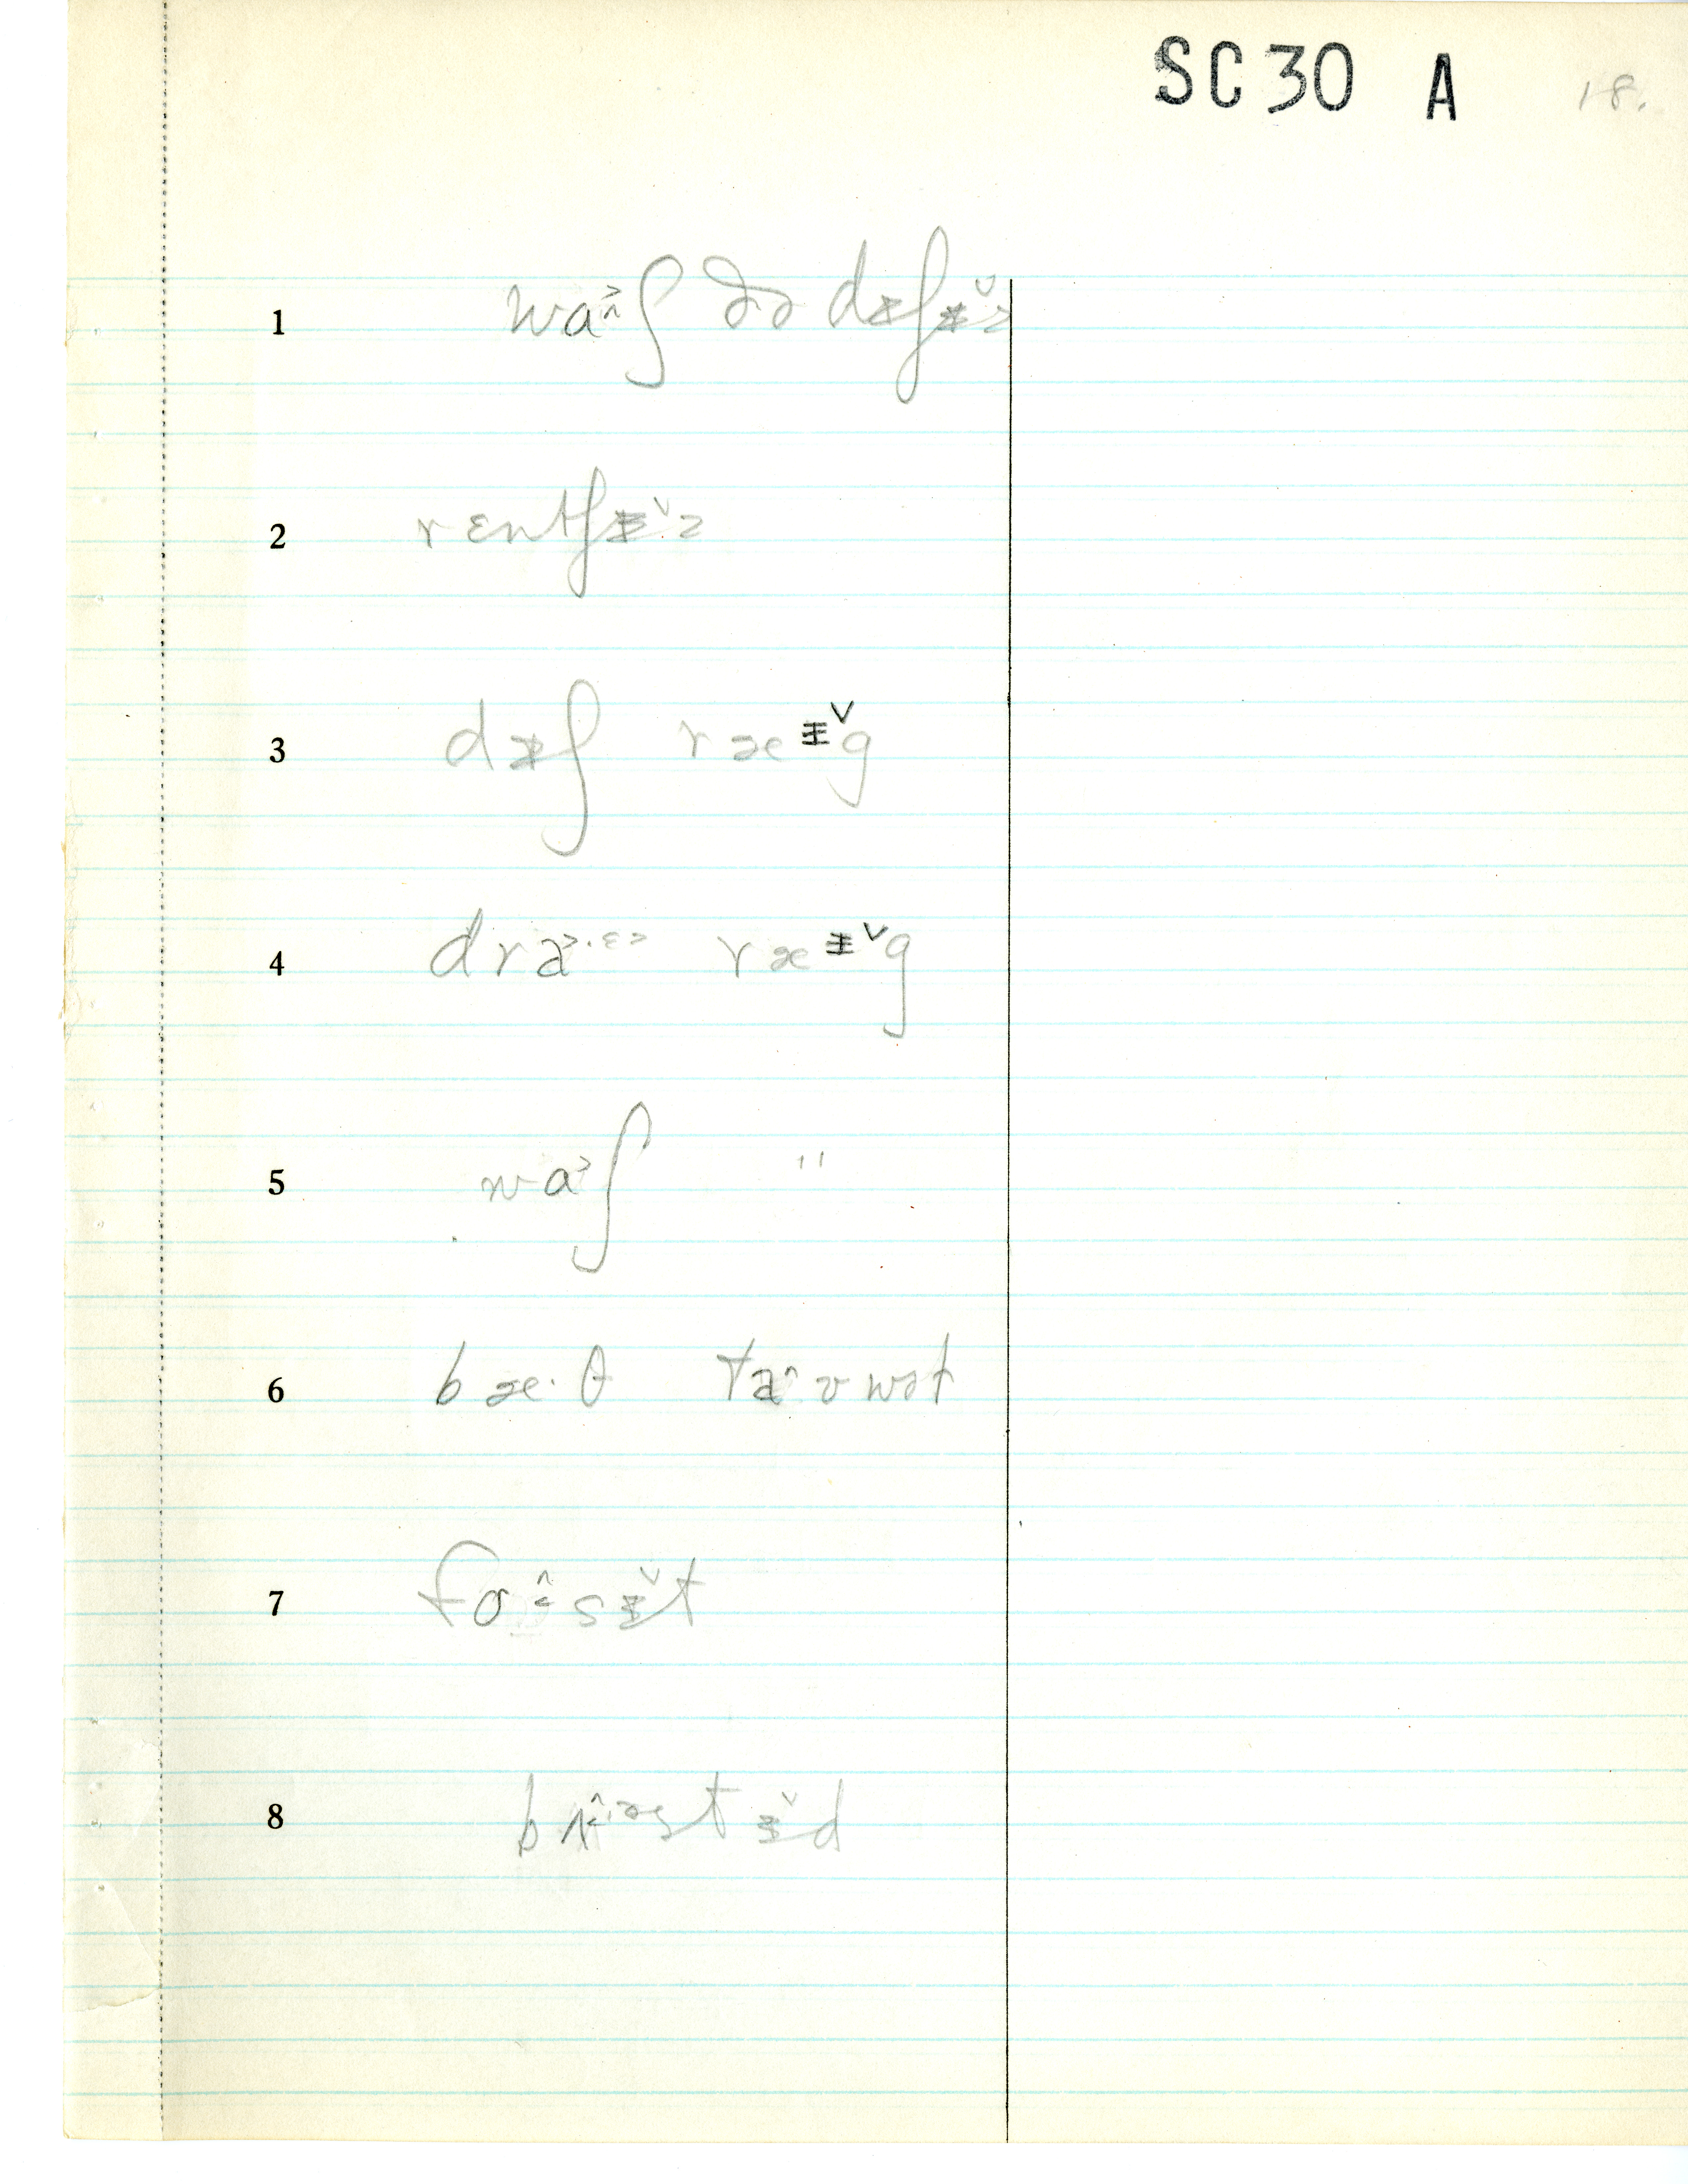 SC 30 A 18.
1 waʃ ðə dɪʃɪz
2 rɛntʃɪz
3 dɪʃ ræɪg
4 dra·ɛ ræɪg
5 waʃ "
6 bæ·θ taʊwət
7 fɔsɪt
8 ɪd